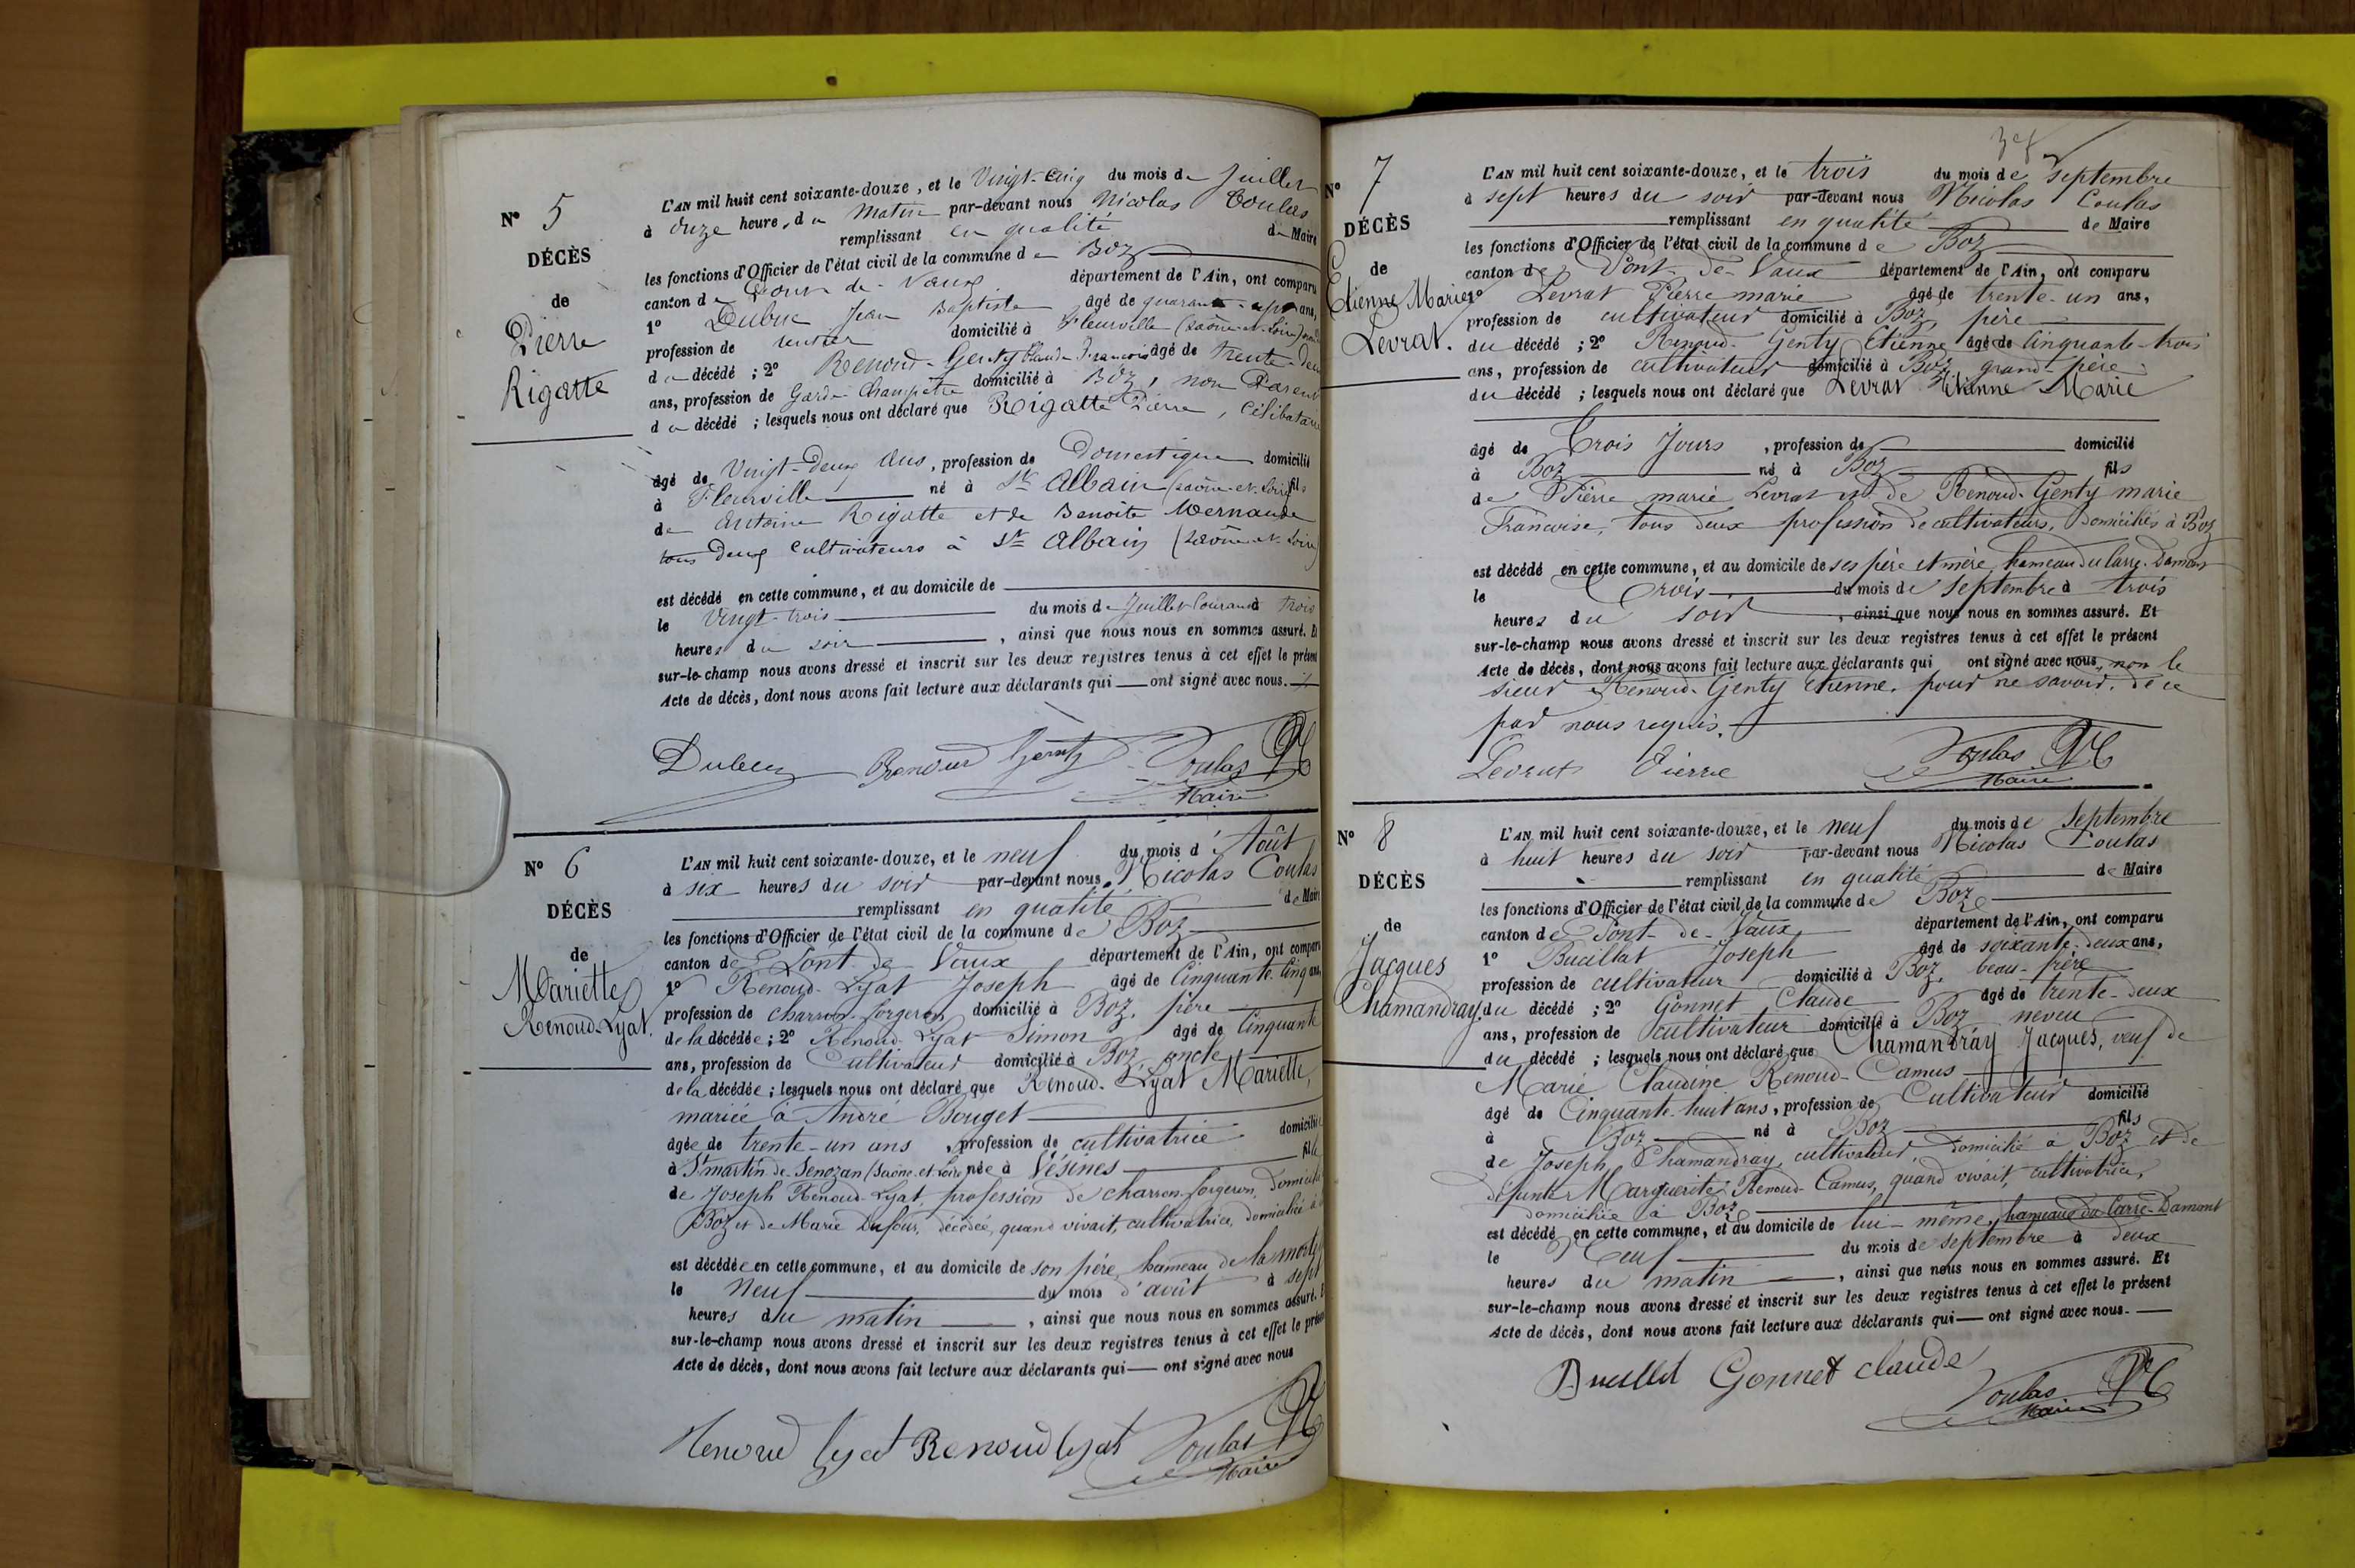 N° 5
DÉCÈS
de
Pierre
Rigatte
L'AN mil huit cent soixante-douze, et le Vingt-Cinq du mois de Juillet
à Onze heures du matin par-devant nous Nicolas Coulas
remplissant en qualité de Maire
les fonctions d'Officier de l'état civil de la commune de Boz
canton de Pont-de-Vaux département de l'Ain, ont comparu
1° Jean Baptiste âgé de ans,
profession de rentier domicilié à Fleurville (Saône-et-Loire)
du décédé ; 2° Renoud-Genty Claude François âgé de trente-deux
ans, profession de Garde Champêtre domicilié à Boz, non Parent
du décédé ; lesquels nous ont déclaré que Rigatte Pierre, célibataire
âgé de Vingt-Deux Ans, profession de Domestique domicilié
à Fleurville né à St Albain (Saône-et-Loire) fils
de Antoine Rigatte et de Benoite
tous deux cultivateurs à St Albain (Saône-et-Loire)
est décédé en cette commune, et au domicile de
le Vingt-trois du mois de Juillet Courant à trois
heures du soir, ainsi que nous nous en sommes assuré. Et
sur-le-champ nous avons dressé et inscrit sur les deux registres tenus à cet effet le présent
Acte de décès, dont nous avons fait lecture aux déclarants qui ont signé avec nous.
Renoud Genty Coulas
Maire
N° 6
DÉCÈS
de
Mariette
Renoud-Lyat.
L'AN mil huit cent soixante-douze, et le neuf du mois d'Août
à six heures du soir par-devant nous Nicolas Coulas
remplissant en qualité de Maire
les fonctions d'Officier de l'état civil de la commune de Boz
canton de Pont-de-Vaux département de l'Ain, ont comparu
1° Renoud-Lyat Joseph âgé de Cinquante-Cinq ans,
profession de charron-forgeron domicilié à Boz, père
de la décédée ; 2° Renoud-Lyat Simon âgé de Cinquante
ans, profession de Cultivateur domicilié à Boz, oncle
de la décédée ; lesquels nous ont déclaré que Renoud-Lyat Mariette,
mariée à André Bouget
âgée de trente-un ans, profession de cultivatrice domiciliée
à St martin-de-Senozan (Saône-et-Loire) née à Vésines fille
de Joseph Renoud-Lyat, profession de charron-forgeron, domicilié
Boz et de Marie Dufour, décédée, quand vivait, cultivatrice, domiciliée à
est décédée en cette commune, et au domicile de son père, hameau de la
le Neuf du mois d'août à sept
heures du matin, ainsi que nous nous en sommes assuré. Et
sur-le-champ nous avons dressé et inscrit sur les deux registres tenus à cet effet le présent
Acte de décès, dont nous avons fait lecture aux déclarants qui ont signé avec nous
Renoud lyat Renoud lyat Coulas
Maire
N° 7
DÉCÈS
de
Etienne Marie
Levrat.
L'AN mil huit cent soixante-douze, et le trois du mois de septembre
à sept heures du soir par-devant nous Nicolas Coulas
remplissant en qualité de Maire
les fonctions d'Officier de l'état civil de la commune de Boz
canton de Pont-de-Vaux département de l'Ain, ont comparu
1° Levrat Pierre marie âgé de trente-un ans,
profession de cultivateur domicilié à Boz, père
du décédé ; 2° Renoud-Genty Etienne âgé de Cinquante-trois
ans, profession de cultivateur domicilié à Boz, grand-père
du décédé ; lesquels nous ont déclaré que Levrat Etienne Marie
âgé de Trois Jours, profession de domicilié
à Boz né à Boz fils
de Pierre marie Levrat et de Renoud-Genty marie
Françoise, tous deux profession de cultivateurs, domiciliés à Boz
est décédé en cette commune, et au domicile de ses père et mère, hameau du Carre-Damont
le Trois du mois de septembre à trois
heures du soir, ainsi que nous nous en sommes assuré. Et
sur-le-champ nous avons dressé et inscrit sur les deux registres tenus à cet effet le présent
Acte de décès, dont nous avons fait lecture aux déclarants qui ont signé avec nous, non le
sieur Renoud-Genty Etienne, pour ne savoir, de ce
par nous requis.
Levrat Pierre Coulas
Maire
N° 8
DÉCÈS
de
Jacques
Chamandray.
L'AN mil huit cent soixante-douze, et le neuf du mois de septembre
à huit heures du soir par-devant nous Nicolas Coulas
remplissant en qualité de Maire
les fonctions d'Officier de l'état civil de la commune de Boz
canton de Pont-de-Vaux département de l'Ain, ont comparu
1° Buaillat Joseph âgé de soixante-deux ans,
profession de cultivateur domicilié à Boz, beau-frère
du décédé ; 2° Gonnet Claude âgé de trente-deux
ans, profession de cultivateur domicilié à Boz neveu
du décédé ; lesquels nous ont déclaré que Chamandray Jacques, veuf de
Marie Claudine Renoud-Camus
âgé de Cinquante-huit ans, profession de Cultivateur domicilié
à Boz né à Boz fils
de Joseph Chamandray, cultivateur, domicilié à Boz et de
défunte Marguerite Renoud-Camus, quand vivait, cultivatrice,
domiciliée à Boz
est décédé en cette commune, et au domicile de lui-même, hameau du Carre-Damont
le Neuf du mois de septembre à deux
heures du matin, ainsi que nous nous en sommes assuré. Et
sur-le-champ nous avons dressé et inscrit sur les deux registres tenus à cet effet le présent
Acte de décès, dont nous avons fait lecture aux déclarants qui ont signé avec nous.
Gonnet claude Coulas
Maire